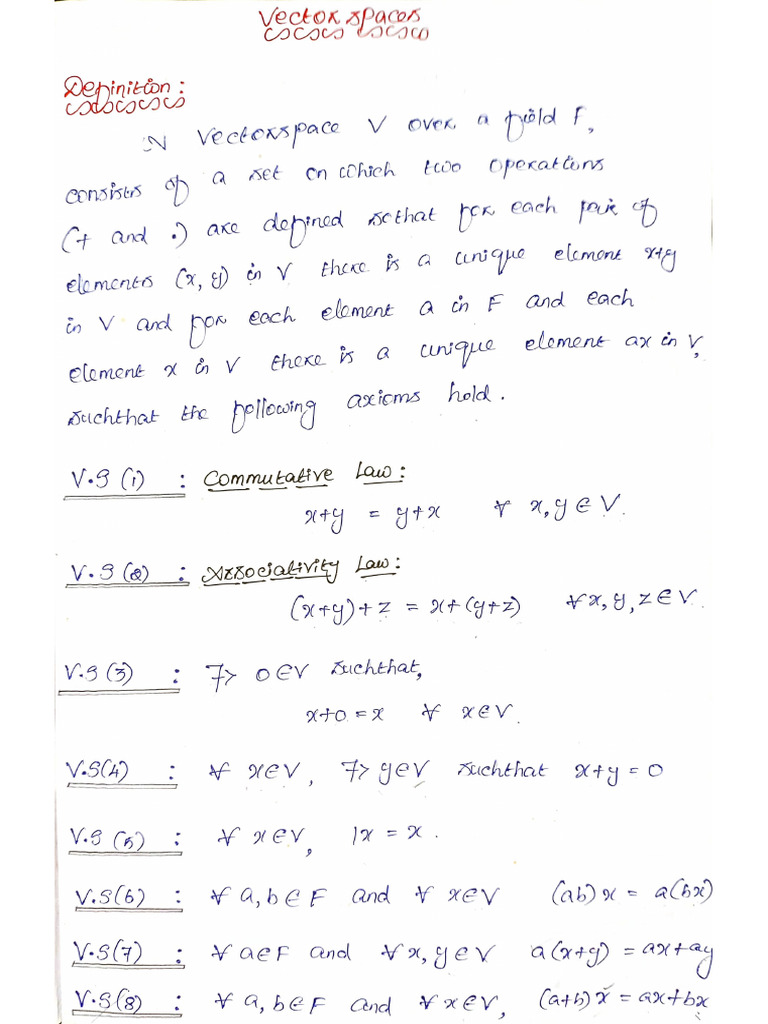 Vector spaces
Definition:
A Vectorspace V over a field F,
consists of a set on which two operations
(+ and •) are defined sothat for each pair of
elements (x, y) in V there is a unique element x+y
in V and for each element a in F and each
element x in V there is a unique element ax in V,
suchthat the following axioms hold.
V.S (1) : Commutative Law:
x+y = y+x ∀ x, y ∈ V.
V.S (2) : Associativity Law:
(x+y)+z = x+(y+z) ∀ x, y, z ∈ V.
V.S (3) : ∃ 0∈V suchthat,
x+0 = x ∀ x∈V.
V.S(4) : ∀ x∈V, ∃ y∈V suchthat x+y = 0
V.S (5) : ∀ x∈V, 1x = x.
V.S(6) : ∀ a, b∈F and ∀ x∈V (ab)x = a(bx)
V.S(7) : ∀ a∈F and ∀x, y∈V a(x+y) = ax+ay
V.S(8) : ∀ a, b∈F and ∀x∈V, (a+b)x = ax+bx